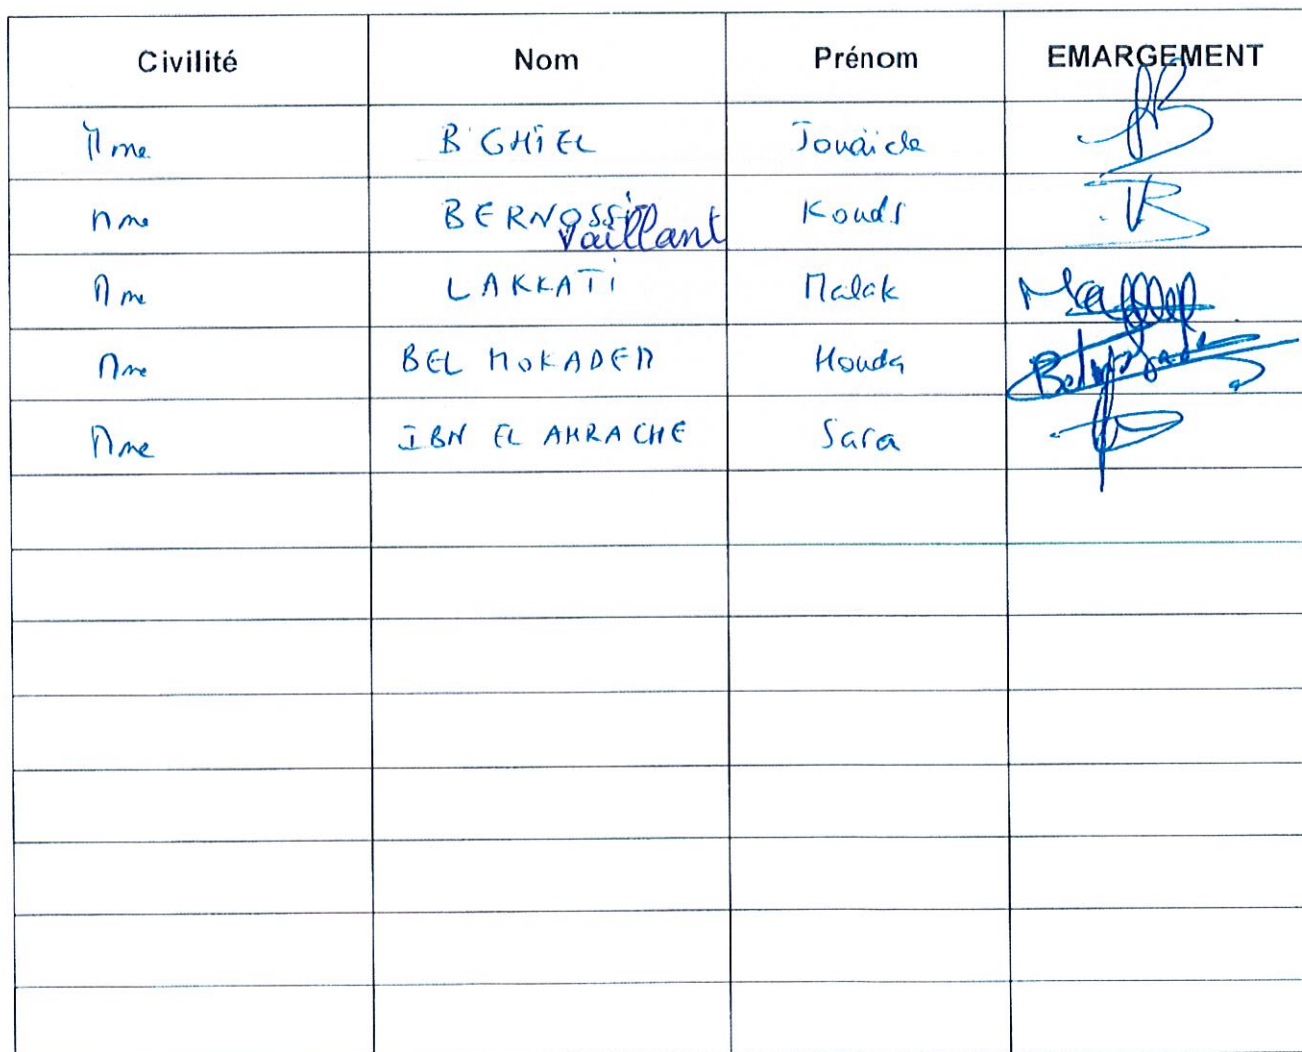 Civilité Nom Prénom EMARGEMENT
Mme B'GHIEL Jouaida
Mme BERNOSSI Kouds
Vaillant
Mme LAKKATI Malak
Mme BEL MOKADEM Houda
Mme IBN EL AHRACHE Sara